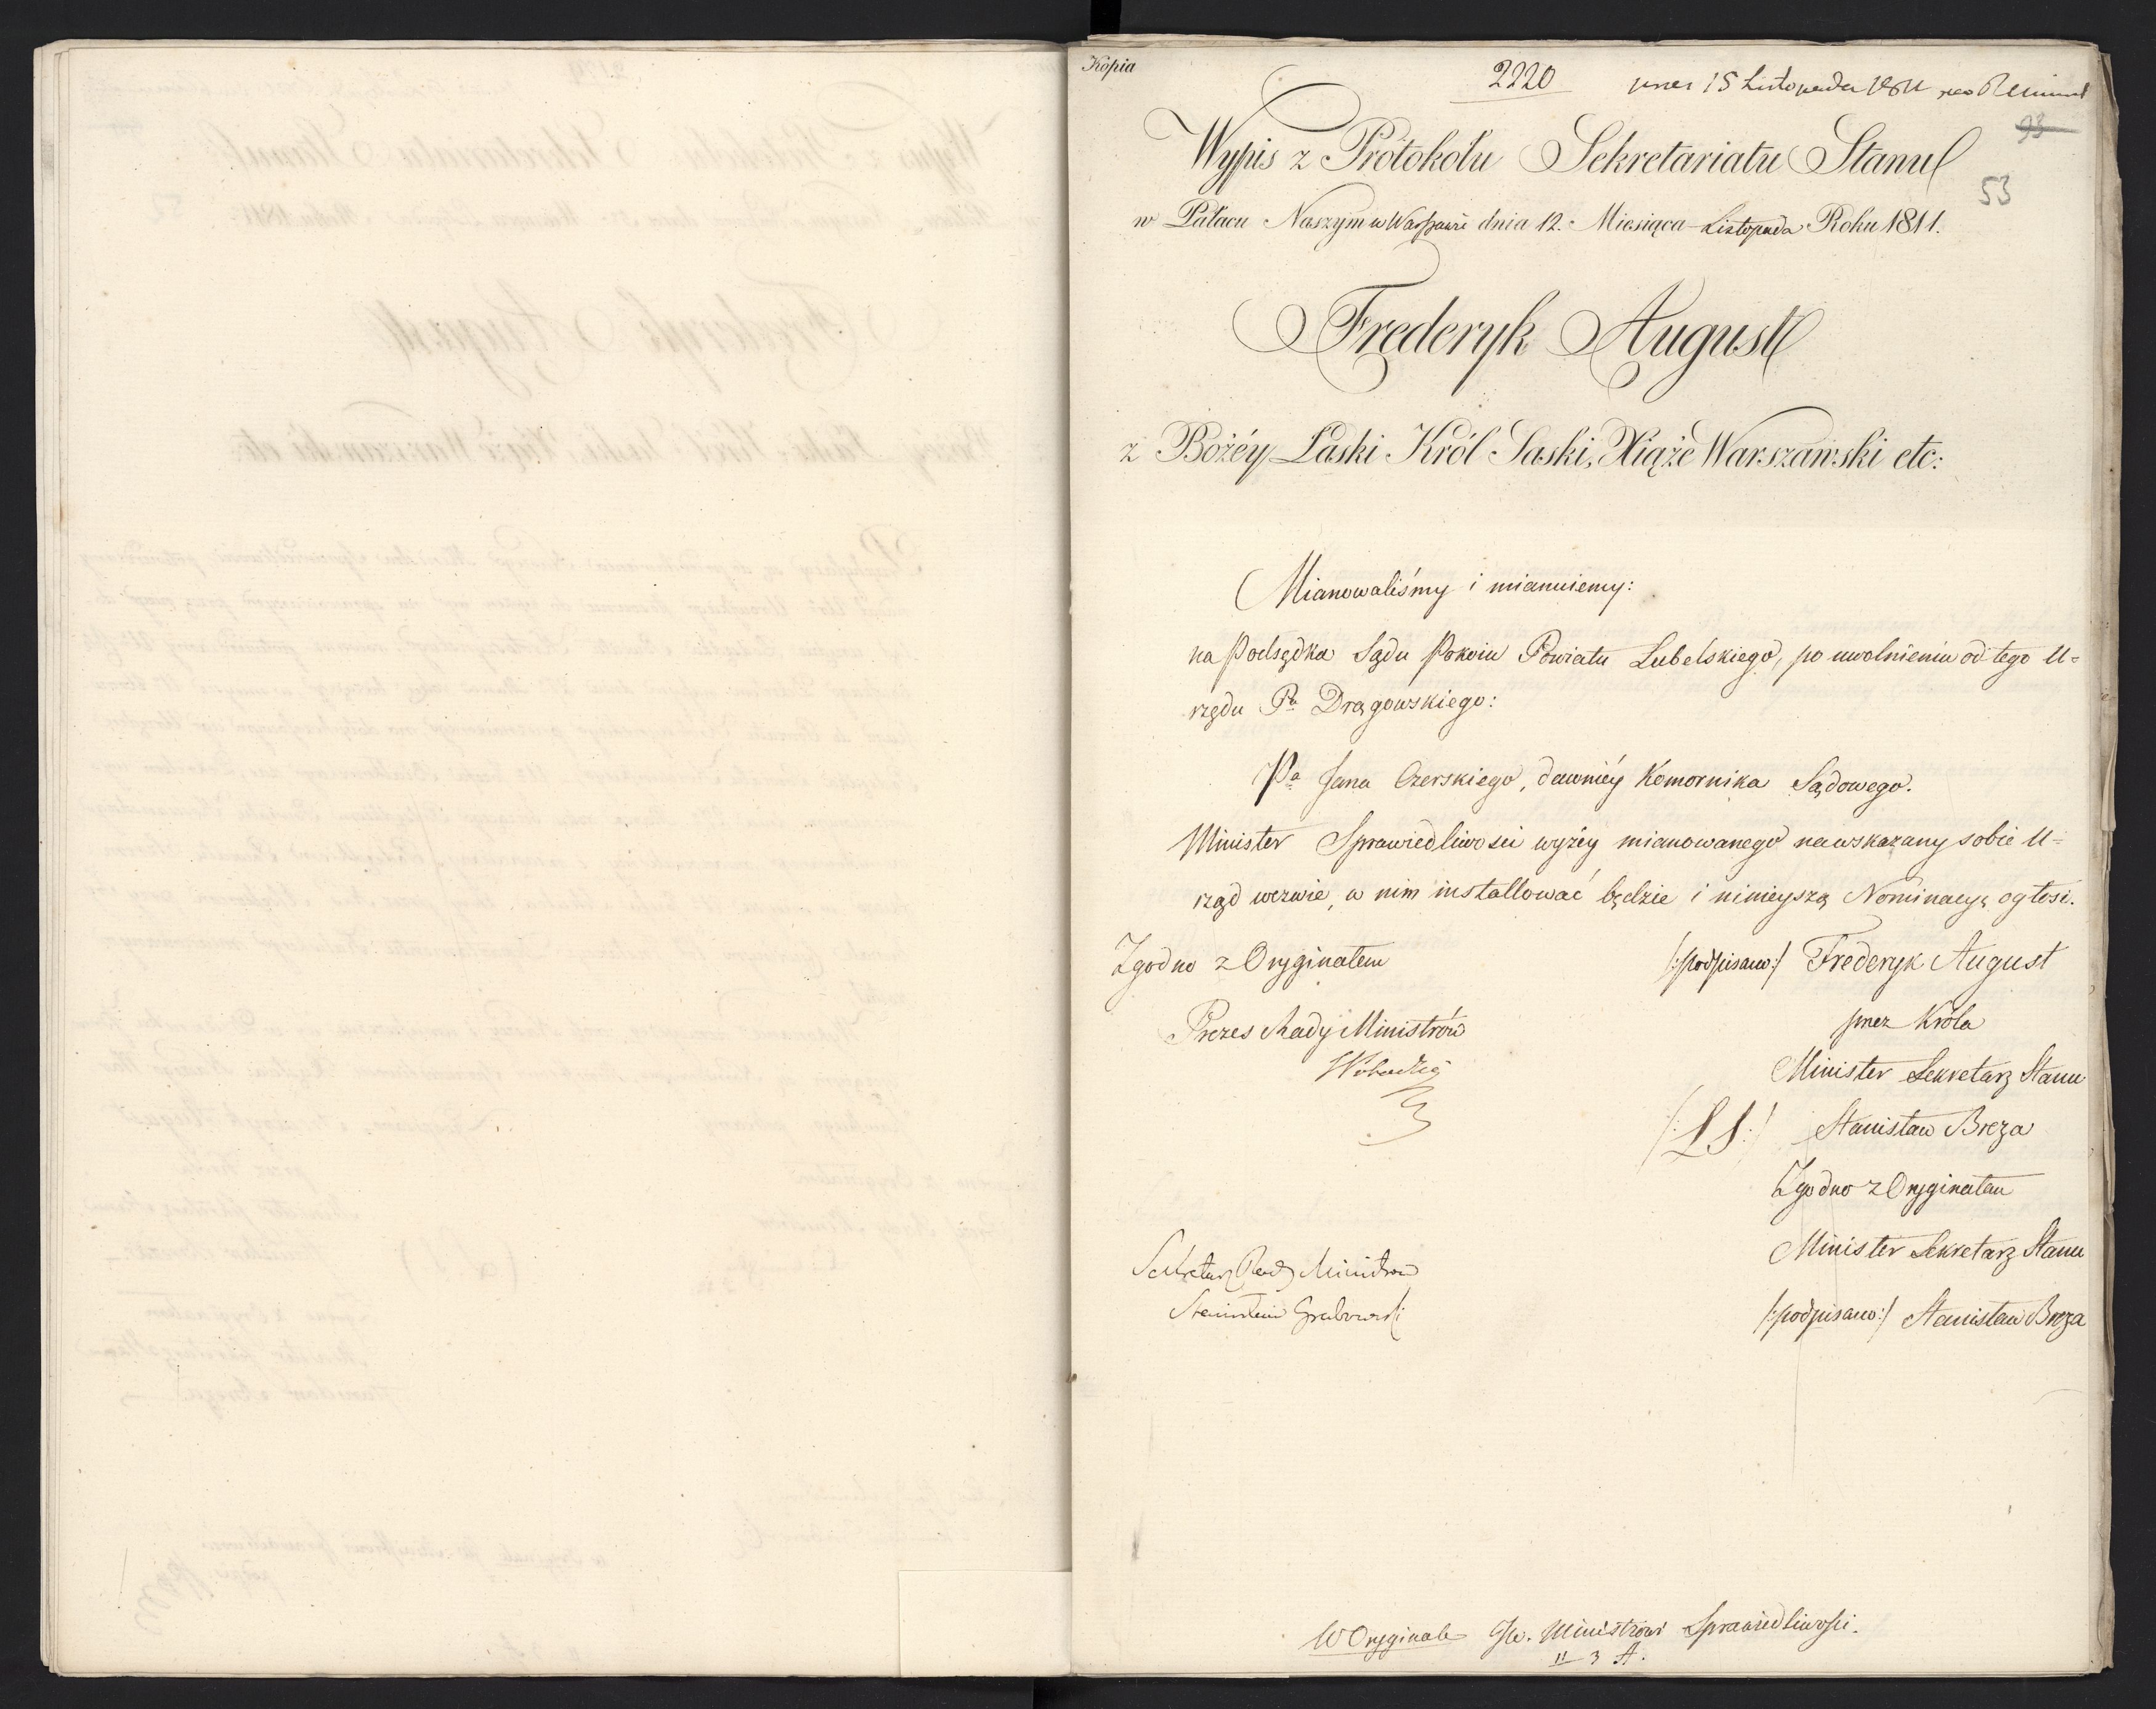 Kopia
2220
15 Listopada 1811
93
Wypis z Protokołu Sekretariatu Stanu
53
w Pałacu Naszym w Warszawie dnia 12. Miesiąca Listopada Roku 1811.
Frederyk August
z Bożéy Łaski Król Saski, Xiąże Warszawski etc:
Mianowaliśmy i mianuiemy:
na Podsędka Sądu Pokoiu Powiatu Lubelskiego, po uwolnieniu od tego U=
rzędu Pa Drągowskiego:
Pa Jana Czerskiego, dawniéy Komornika Sądowego.
Minister Sprawiedliwości wyżéy mianowanego na wskazany sobie U=
rząd wezwie, w nim installować będzie i ninieyszą Nominacyą ogłosi.
Zgodno z Oryginałem
/:podpisano:/ Frederyk August
Prezes Rady Ministrów
przez Króla
Minister Sekretarz Stanu
/:LS:/ Stanisław Breza
Zgodno z Oryginałem
Minister Sekretarz Stanu
Sekretarz Rady Ministrów
Stanisław Grabowski
/:podpisano:/ Stanisław Breza
W Oryginale JW. Ministrowi Sprawiedliwości.